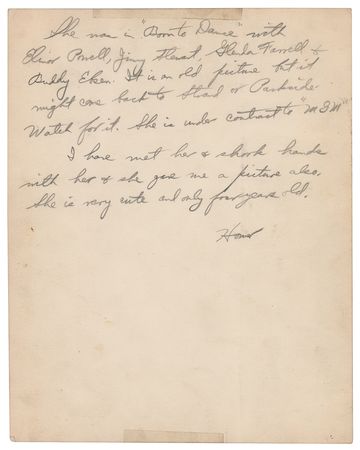 She was in "Born to Dance" with
Elinor Powell, Jimy Stewat, Glenda Farrell &
Buddy Ebsen. It is an old picture but it
might come back to Strad or Parkside
Watch for it. She is under contract to "M.G.M"
I have met her & shook hands
with her & she gave me a picture also.
She is very cute and only four years old.
Homer